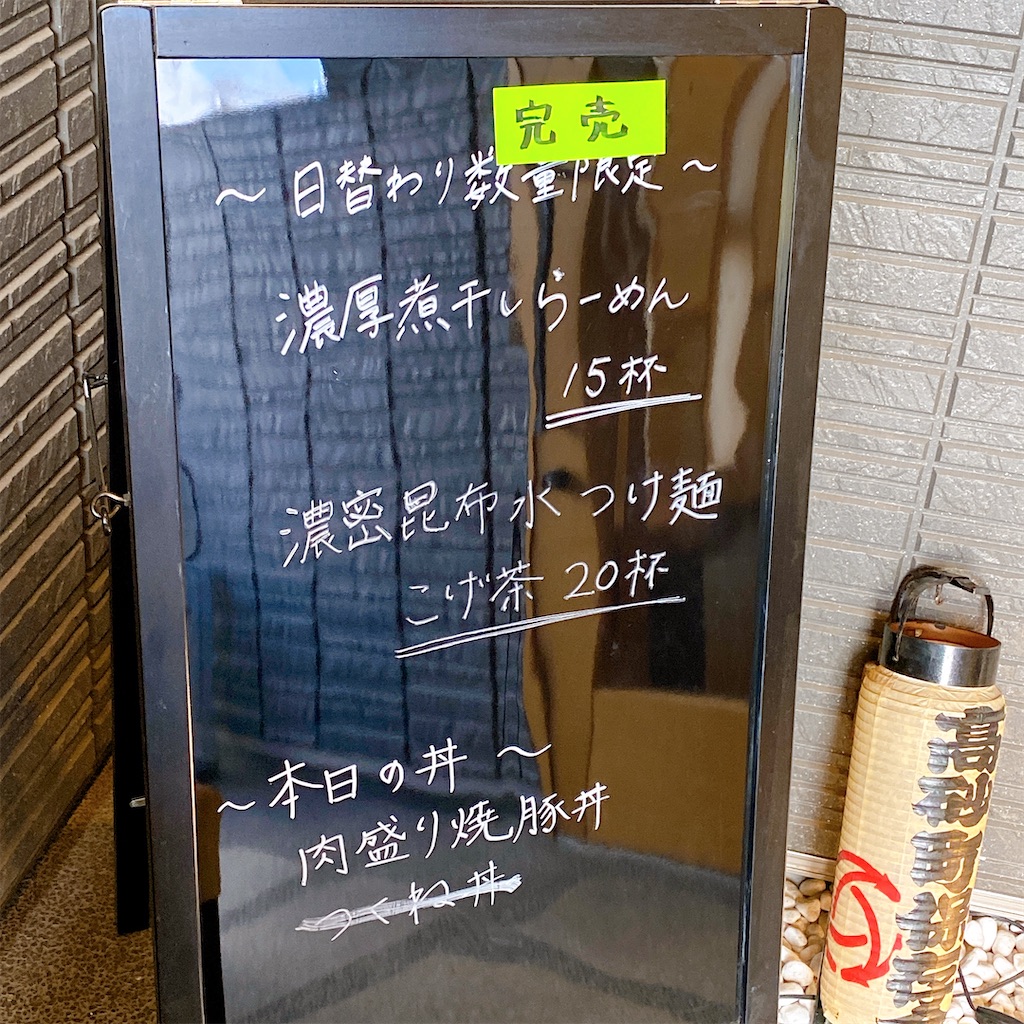 完売
～日替わり数量限定～
濃厚煮干しらーめん
15杯
濃密昆布水つけ麺
こげ茶 20杯
～本日の丼～
肉盛り焼豚丼
つくね丼
高砂町